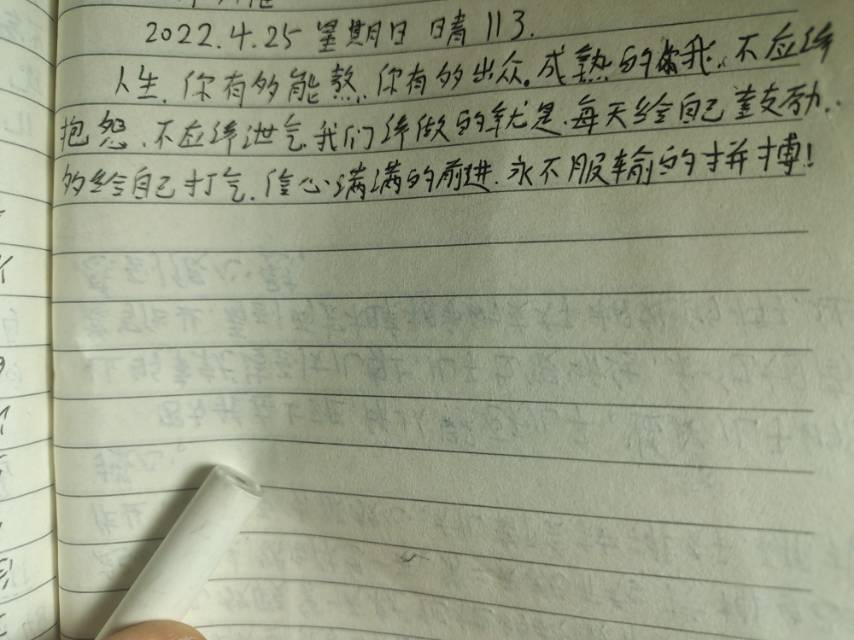 2022.4.25 星期日 晴 113.
人生,你有多能熬,你有多出众。成熟的你我,不应该
抱怨,不应该泄气,我们该做的就是,每天给自己鼓励,
多给自己打气,信心满满的前进,永不服输的拼搏!